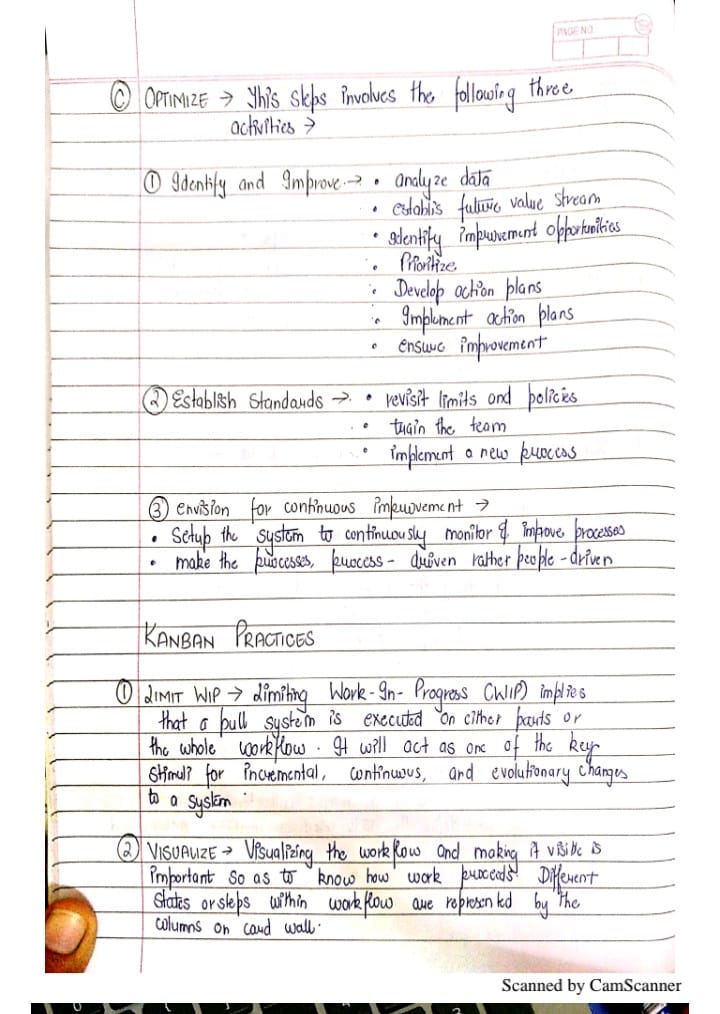 PAGE NO.
Ⓒ OPTIMIZE → This steps involves the following three
activities →
① Identify and Improve → • analyze data
• establis future value stream
• Identify improvement opportunities
• Prioritize
• Develop action plans
• Implement action plans
• ensure improvement
② Establish Standards → • revisit limits and policies
• train the team
• implement a new process
③ envision for continuous improvement →
• Setup the system to continuously monitor & improve processes
• make the processes, process - driven rather people - driven
KANBAN PRACTICES
① LIMIT WIP → Limiting Work-In-Progress (WIP) implies
that a pull system is executed on either parts or
the whole workflow. It will act as one of the key
Stimuli for incremental, continuous, and evolutionary changes
to a system.
② VISUALIZE → Visualizing the workflow and making it visible is
important so as to know how work proceeds. Different
States or steps within workflow are represented by the
columns on card wall.
Scanned by CamScanner